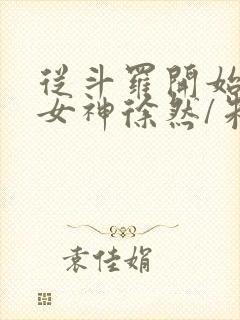 從斗羅開始
女神徐然/朱
袁佳娟